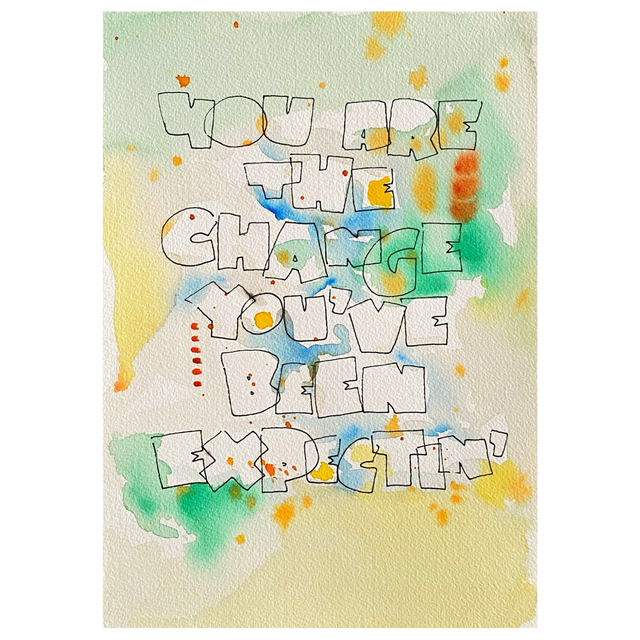 YOU ARE
THE
CHANGE
YOU'VE
BEEN
EXPECTIN'